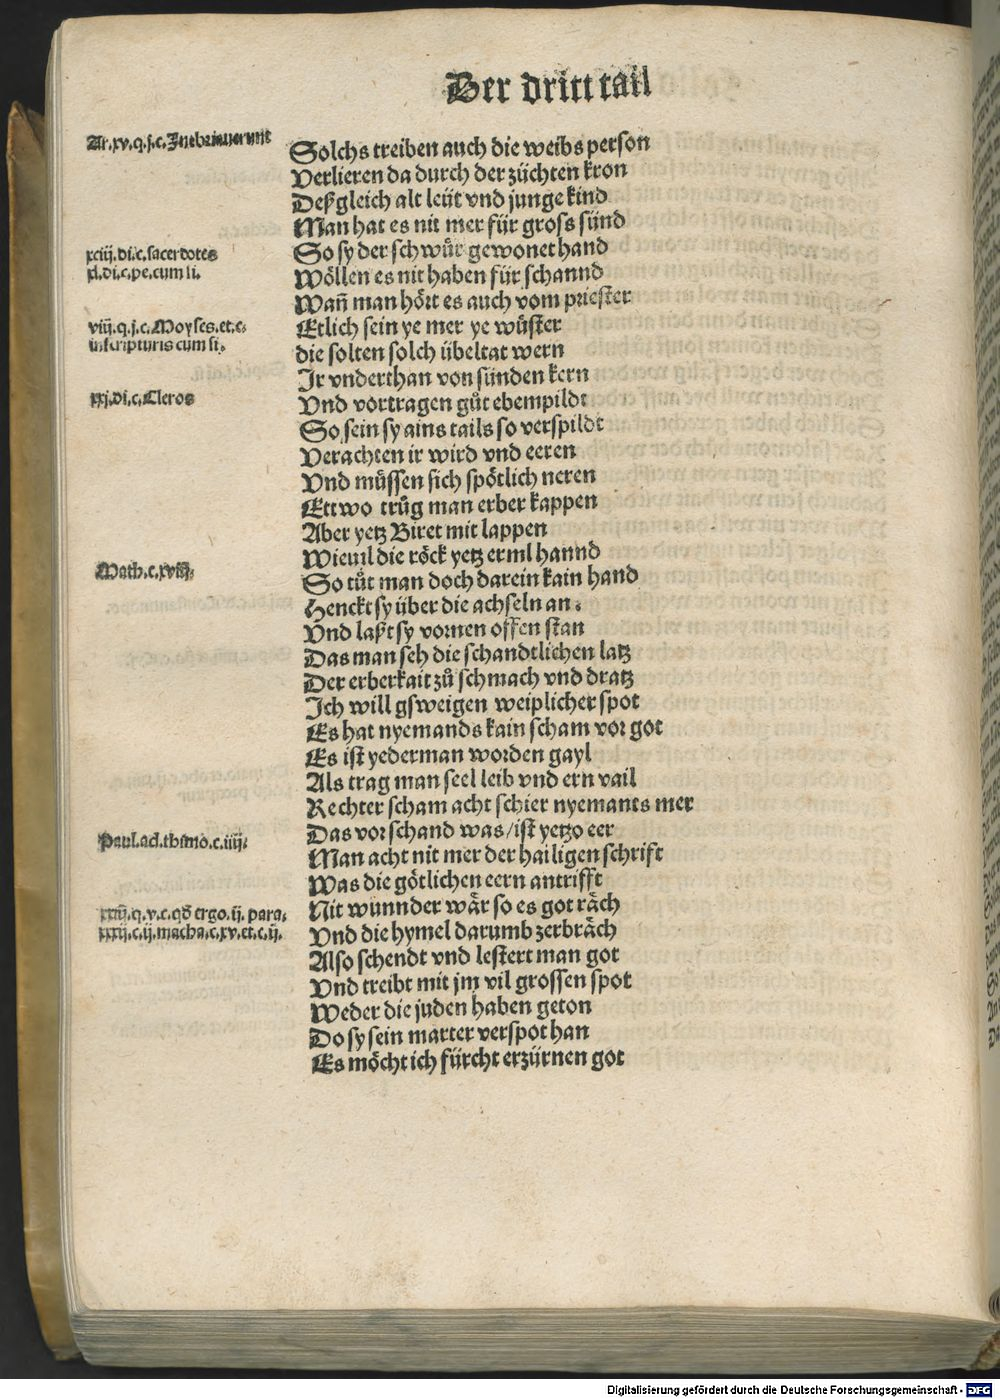 Der dritt tail
Ar.xv.q.j.c.Inebriauerunt
Solchs treiben auch die weibs person
Verlieren da durch der züchten kron
Deßgleich alt leüt vnd junge kind
Man hat es nit mer für groſs ſünd
xciij.di.c.ſacerdotes
So ſy der ſchwür gewonet hand
d.di.c.pe.cum ſi.
Wöllen es nit haben für ſchannd
Wañ man hört es auch vom prieſter
viij.q.j.c.Moyſes.et.c.
Etlich ſein ye mer ye wüſter
inſcripturis cum ſi.
die ſolten ſolch übeltat wern
Ir vnderthan von ſünden kern
xxj.di.c.Cleros
Vnd vortragen gůt ebempildt
So ſein ſy ains tails ſo verſpildt
Verachten ir wird vnd eeren
Vnd můſſen ſich ſpötlich neren
Ettwo trůg man erber kappen
Aber yetz Biret mit lappen
Wieuil die röck yetz erml hannd
Math.c.xviij.
So tůt man doch darein kain hand
Henckt ſy über die achſeln an.
Vnd laßt ſy vornen offen ſtan
Das man ſeh die ſchandtlichen latz
Der erberkait zů ſchmach vnd dratz
Ich will gſweigen weiplicher ſpot
Es hat nyemands kain ſcham vor got
Es iſt yederman worden gayl
Als trag man ſeel leib vnd ern vail
Rechter ſcham acht ſchier nyemants mer
Paul.ad.thimo.c.iiij.
Das vor ſchand was/iſt yetzo eer
Man acht nit mer der hailigen ſchrift
Was die götlichen eern antrifft
xxiij.q.v.c.qd ergo.ij.para.
Nit wunnder wär ſo es got räch
xxxij.c.ij.macha.c.xv.et.c.ij.
Vnd die hymel darumb zerbräch
Alſo ſchendt vnd leſtert man got
Vnd treibt mit jm vil groſſen ſpot
Weder die juden haben geton
Do ſy ſein marter verſpot han
Es möcht ich fürcht erzürnen got
Digitalisierung gefördert durch die Deutsche Forschungsgemeinschaft - DFG